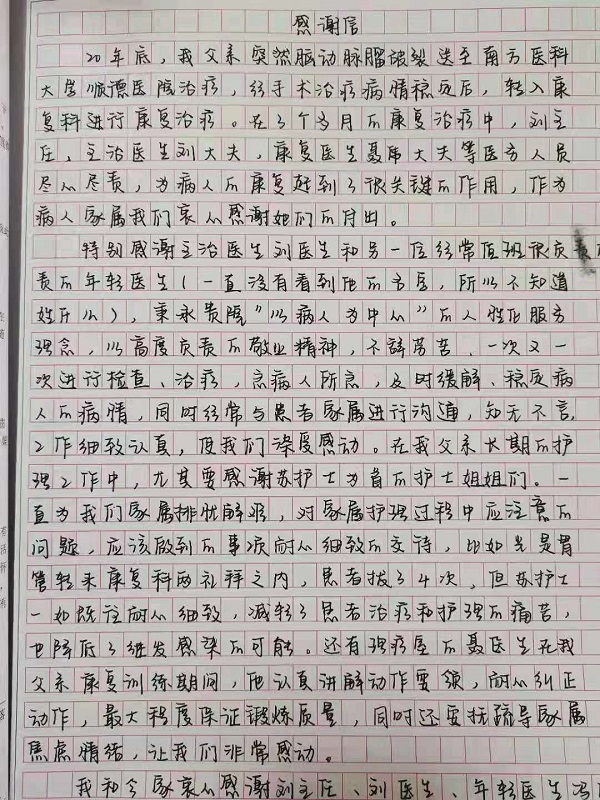 感谢信
20年底，我父亲突然脑动脉瘤破裂送至南方医科
大学顺德医院治疗，经手术治疗病情稳定后，转入康
复科进行康复治疗。在3个多月的康复治疗中，刘主
任，主治医生刘大夫，康复医生聂帝大夫等医方人员
尽心尽责，为病人的康复起到了很关键的作用，作为
病人家属我们衷心感谢她们的付出。
特别感谢主治医生刘医生和另一位经常值班很负责
责的年轻医生（一直没有看到他的名字，所以不知道
姓什么），秉承贵院"以病人为中心"的人性化服务
理念，以高度负责的敬业精神，不辞劳苦，一次又一
次进行检查、治疗，急病人所急，及时缓解、稳定病
人的病情，同时经常与患者家属进行沟通，知无不言，
工作细致认真，使我们深度感动。在我父亲长期的护
理工作中，尤其要感谢苏护士为首的护士姐姐们。一
直为我们家属排忧解难，对家属护理过程中应注意的
问题，应该做到的事项耐心细致的交待，比如光是胃
管转来康复科两礼拜之内，患者拔了4次，但苏护士
一如既往耐心细致，减轻了患者治疗和护理的痛苦，
也降低了继发感染的可能。还有理疗室的聂医生在我
父亲康复训练期间，他认真讲解动作要领，耐心纠正
动作，最大程度保证锻炼质量，同时还要抚疏导家属
焦虑情绪，让我们非常感动。
我和全家衷心感谢刘主任、刘医生、年轻医生